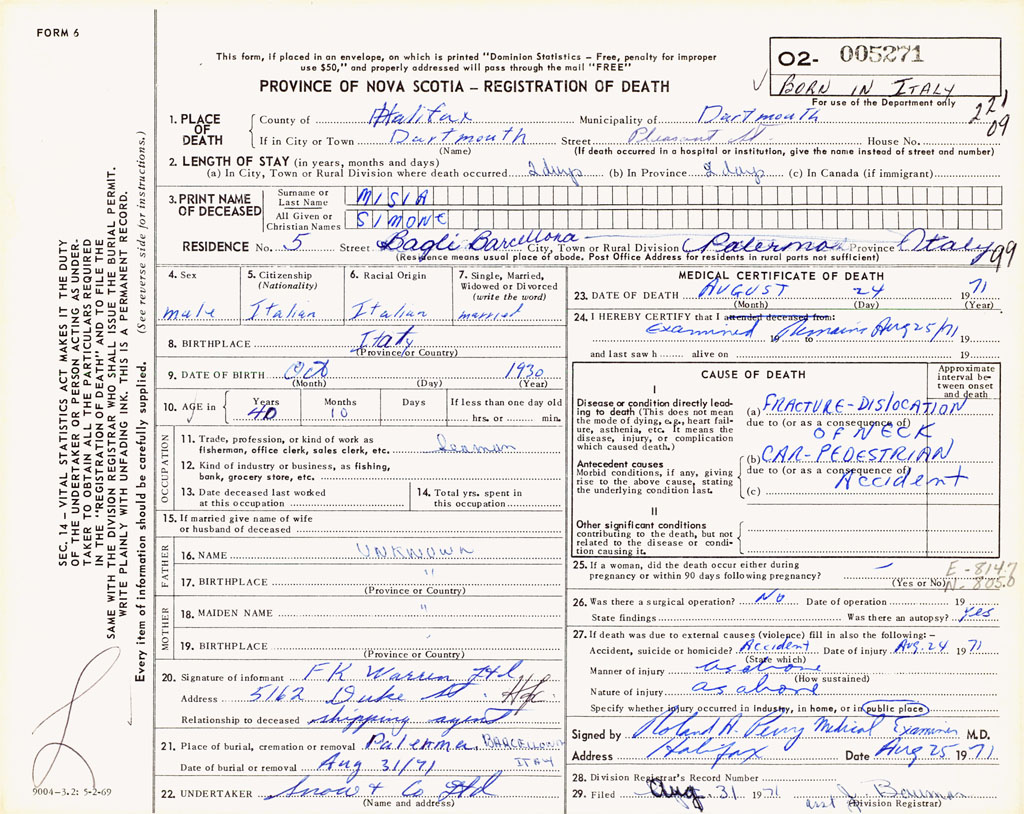 FORM 6
This form, if placed in an envelope, on which is printed "Dominion Statistics – Free, penalty for improper
use $50," and properly addressed will pass through the mail "FREE"
PROVINCE OF NOVA SCOTIA – REGISTRATION OF DEATH
02- 005271
BORN IN ITALY
For use of the Department only
221
09
1. PLACE OF DEATH
County of Halifax Municipality of Dartmouth
If in City or Town Dartmouth Street Pleasant St House No.
(Name) (If death occurred in a hospital or institution, give the name instead of street and number)
2. LENGTH OF STAY (in years, months and days)
(a) In City, Town or Rural Division where death occurred 2 days (b) In Province 2 days (c) In Canada (if immigrant)
3. PRINT NAME OF DECEASED
Surname or Last Name MISIA
All Given or Christian Names SIMONE
RESIDENCE No. 5 Street Bagli Barcellona City, Town or Rural Division Palermo Province Italy 99
(Residence means usual place of abode. Post Office Address for residents in rural parts not sufficient)
4. Sex
male
5. Citizenship (Nationality)
Italian
6. Racial Origin
Italian
7. Single, Married, Widowed or Divorced (write the word)
married
8. BIRTHPLACE Italy
(Province or Country)
9. DATE OF BIRTH Oct 1930
(Month) (Day) (Year)
10. AGE in Years Months Days If less than one day old
40 10 hrs. or min.
OCCUPATION
11. Trade, profession, or kind of work as
fisherman, office clerk, sales clerk, etc. Seaman
12. Kind of industry or business, as fishing,
bank, grocery store, etc.
13. Date deceased last worked
at this occupation
14. Total yrs. spent in
this occupation
15. If married give name of wife
or husband of deceased
FATHER
16. NAME UNKNOWN
17. BIRTHPLACE "
(Province or Country)
MOTHER
18. MAIDEN NAME "
19. BIRTHPLACE
(Province or Country)
20. Signature of informant F K Warren Ltd
Address 5162 Duke St. Hfx
Relationship to deceased shipping agent
21. Place of burial, cremation or removal Palermo, BARCELLONA
ITALY
Date of burial or removal Aug 31/71
22. UNDERTAKER Snow & Co Ltd
(Name and address)
MEDICAL CERTIFICATE OF DEATH
23. DATE OF DEATH AUGUST 24 1971
(Month) (Day) (Year)
24. I HEREBY CERTIFY that I attended deceased from:
Examined Remains Aug 25/71
19 to 19
and last saw h alive on 19
CAUSE OF DEATH
Approximate interval between onset and death
I
Disease or condition directly leading to death (This does not mean
the mode of dying, e.g., heart failure, asthenia, etc. It means the
disease, injury, or complication
which caused death.)
(a) FRACTURE-DISLOCATION
due to (or as a consequence of)
OF NECK
Antecedent causes
Morbid conditions, if any, giving
rise to the above cause, stating
the underlying condition last.
(b) CAR-PEDESTRIAN
due to (or as a consequence of)
Accident
(c)
II
Other significant conditions
contributing to the death, but not
related to the disease or condition causing it.
25. If a woman, did the death occur either during
pregnancy or within 90 days following pregnancy? –
(Yes or No)
E-814.7
N-805.0
26. Was there a surgical operation? No Date of operation 19
State findings Was there an autopsy? yes
27. If death was due to external causes (violence) fill in also the following: –
Accident, suicide or homicide? Accident Date of injury Aug. 24 1971
(State which)
Manner of injury as above
(How sustained)
Nature of injury as above
Specify whether injury occurred in industry, in home, or in public place
Signed by Roland A. Perry Medical Examiner M.D.
Address Halifax Date Aug 25 1971
28. Division Registrar's Record Number
29. Filed Aug. 31 1971 asst J. Bauman
(Division Registrar)
SEC. 14 – VITAL STATISTICS ACT MAKES IT THE DUTY
OF THE UNDERTAKER OR PERSON ACTING AS UNDER-
TAKER TO OBTAIN ALL THE PARTICULARS REQUIRED
IN THE "REGISTRATION OF DEATH" AND TO FILE THE
SAME WITH THE DIVISION REGISTRAR WHO SHALL ISSUE THE BURIAL PERMIT.
WRITE PLAINLY WITH UNFADING INK. THIS IS A PERMANENT RECORD.
Every item of information should be carefully supplied. (See reverse side for instructions.)
9004-3.2: 5-2-69